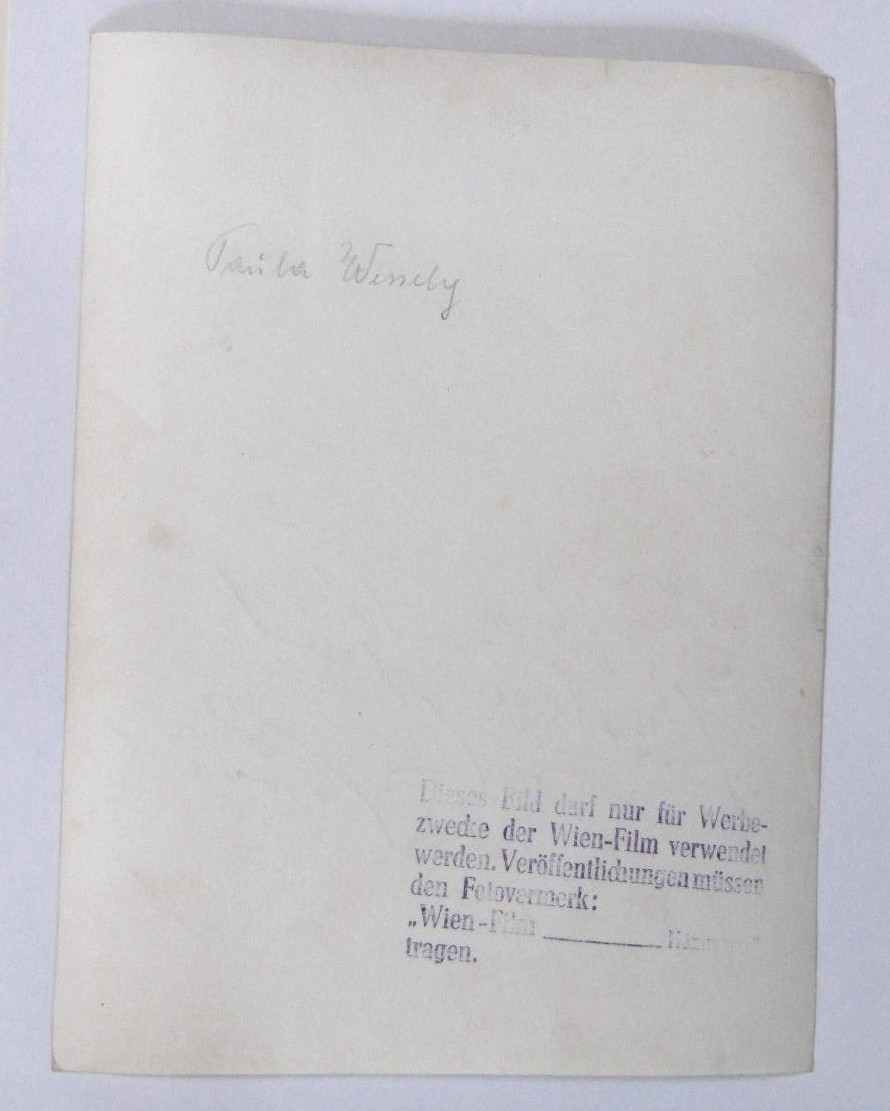 Paula Wessely
Dieses Bild darf nur für Werbe-
zwecke der Wien-Film verwendet
werden. Veröffentlichungen müssen
den Fotovermerk:
„Wien-Film ________
tragen.